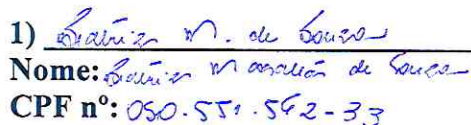 1) Beatriz M. de Souza
Nome: Beatriz M de Souza
CPF nº: 050.551.542-33